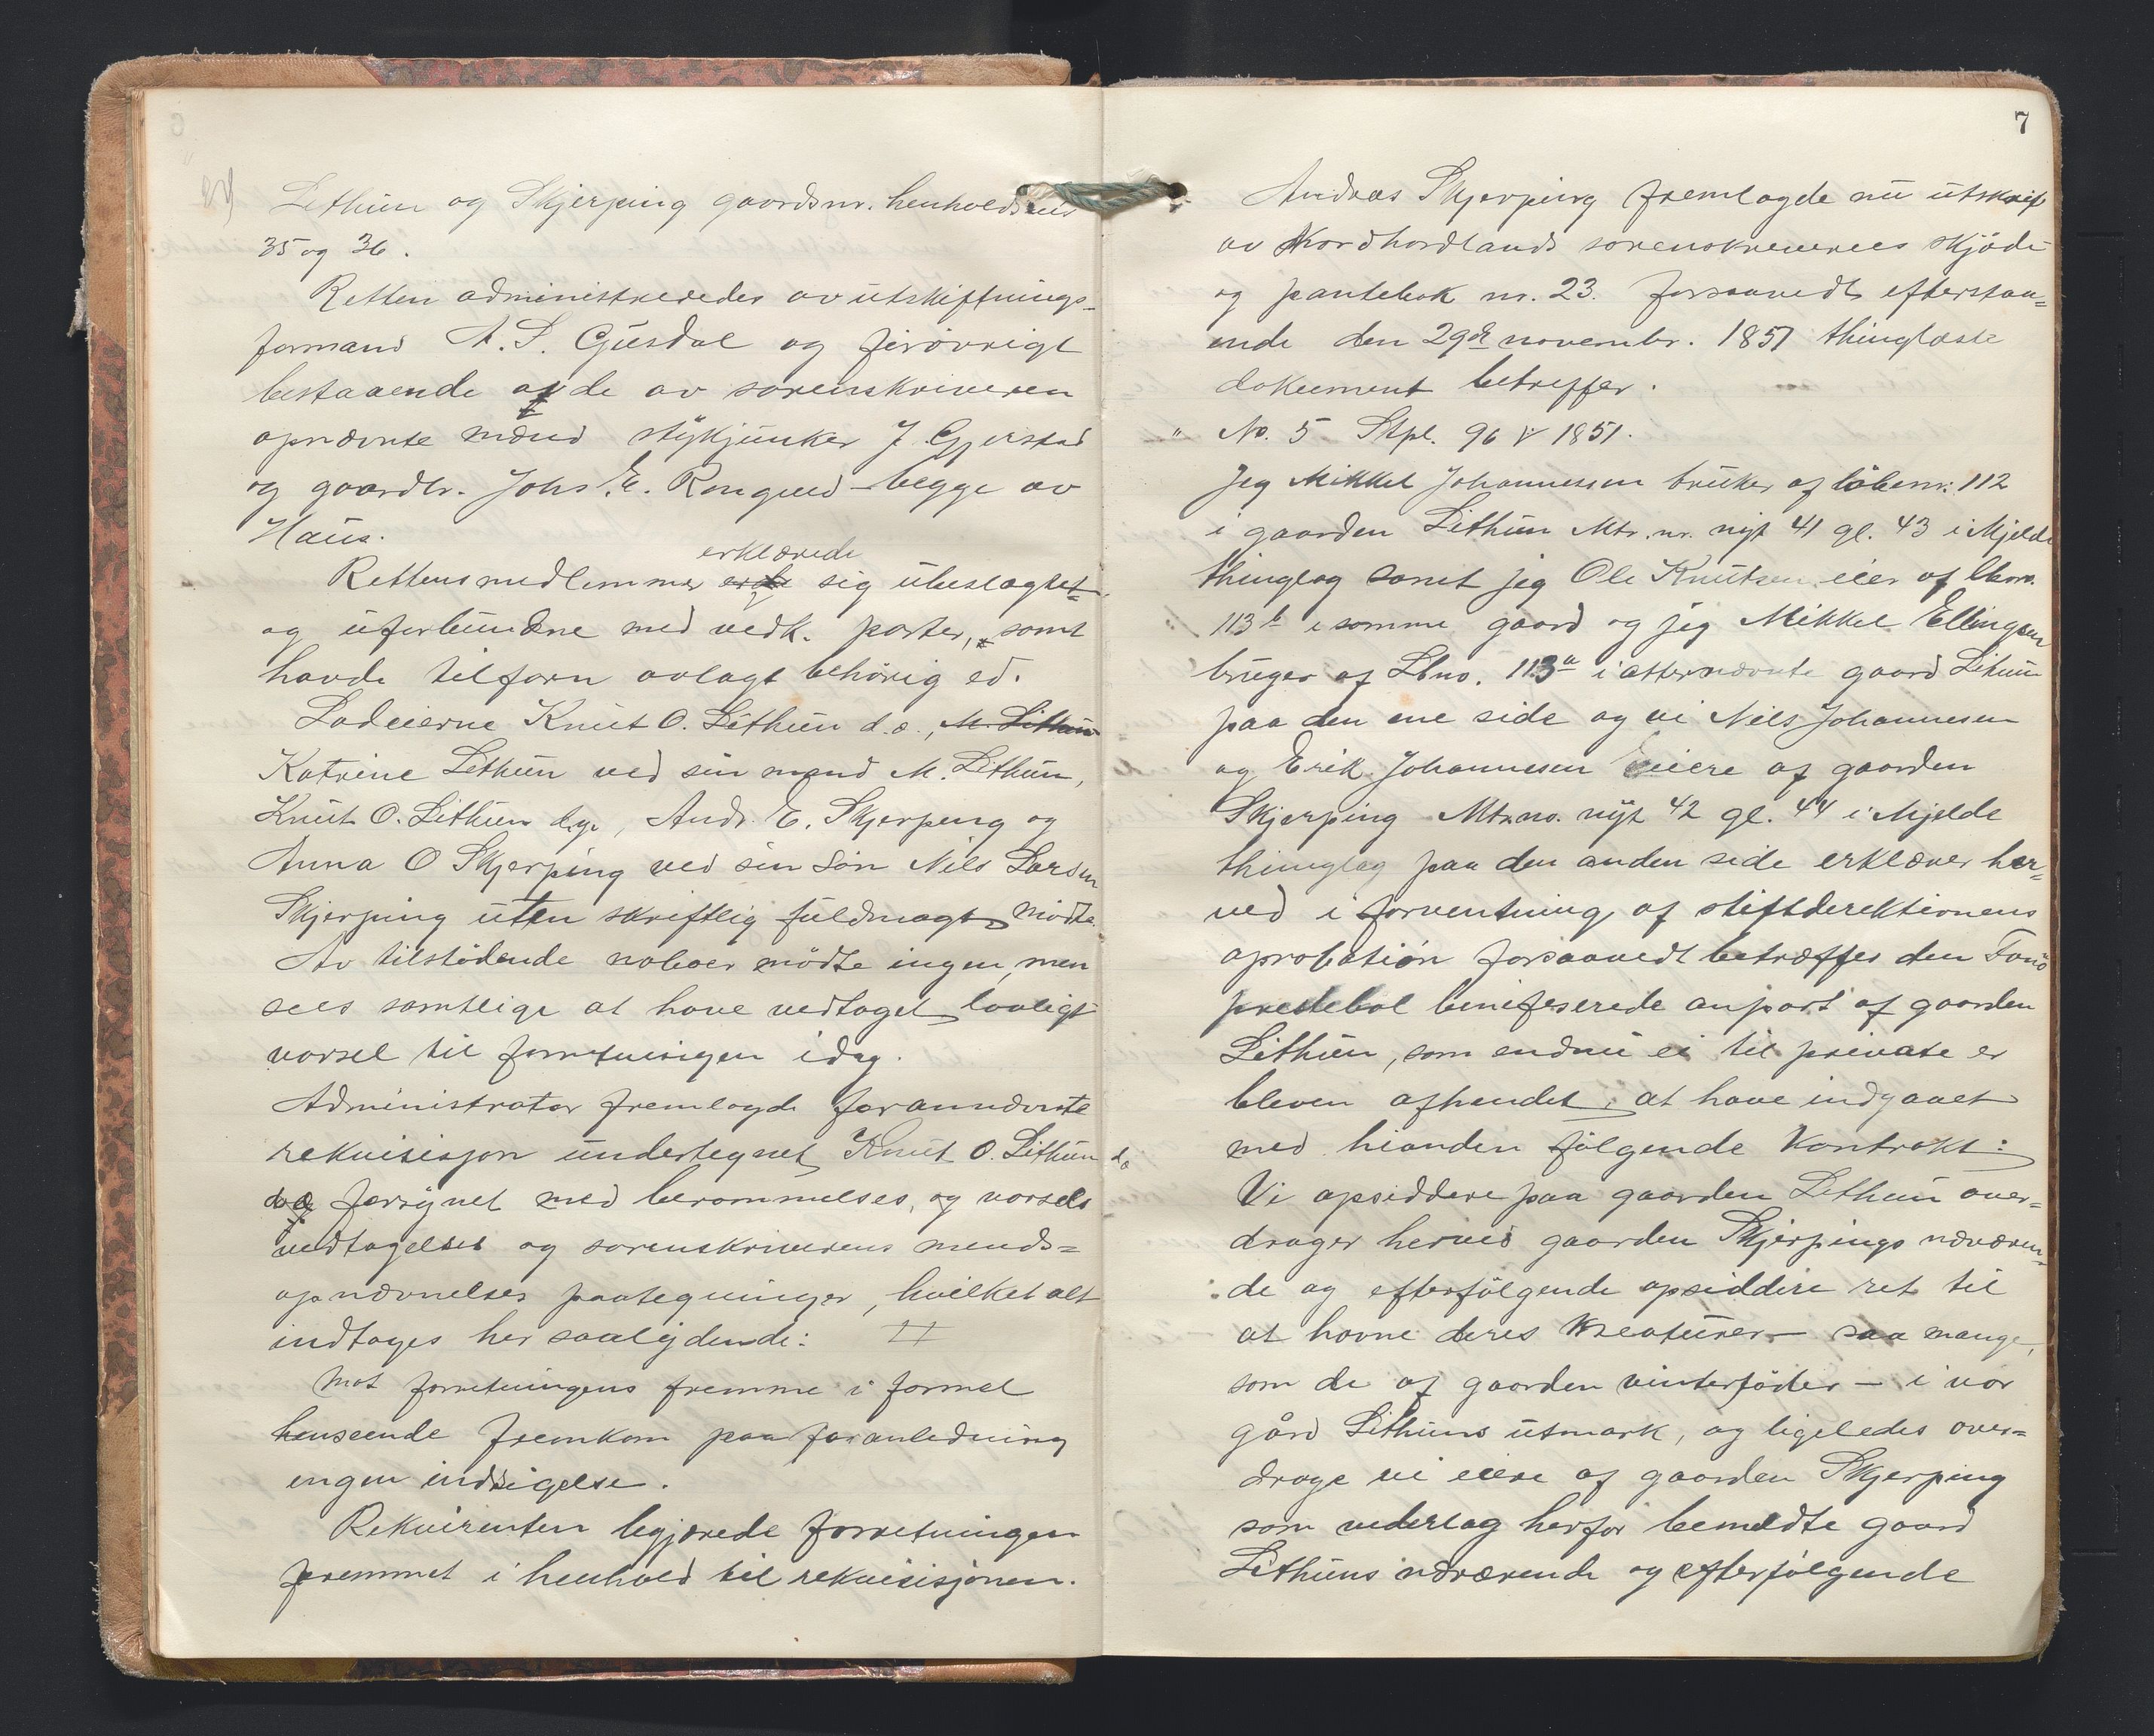 Lithun og Skjerping gaardsnr. henholdsvis
35 og 36.
Retten administreredes av utskiftnings-
formand A. S. Gusdal og forøvrigt
bestaaende av de av sorenskriveren
opnævnte mænd stykjunker J. Gjerstad
og gaardbr. Johs. E. Rongved – begge av
Haus.
erklærede
Rettensmedlemmer sig ubeslægtet
og uforbundne med vedk. parter, samt
havde tilforn avlagt behørig ed.
Lodeierne Knut O. Lithun d.æ., M. Lithun
Katrine Lithun ved sin mand M. Lithun,
Knut O. Lithun d.y., Andr. E. Skjerping og
Anna O Skjerping ved sin søn Nils Larsen
Skjerping uten skriftlig fuldmagt mødte.
Av tilstødende naboer mødte ingen, men
sees samtlige at have vedtaget lovligt
varsel til forretningen idag.
Administrator fremlagde forannævnte
rekvisisjon undertegnet Knut O. Lithun d.æ
forsynet med berammelses, og varsels
vedtagelses og sorenskriverens mends=
opnævnelses paategninger, hvilket alt
indtages her saalydende:
Mot forretningens fremme i formel
henseende fremkom paa foranledning
ingen indsigelse.
Rekvirenten begjærede forretningen
fremmet i henhold til rekvisisjonen.
7
Andreas Skjerping fremlagde nu utskrift
av Nordhordlands sorenskriveries skjøde
og pantebok nr. 23. forsaavidt efterstaa=
ende den 29de novembr. 1851 thinglæste
dokument betreffer.
" No. 5 Stpl. 96 ʆ 1851.
Jeg Mikkel Johannessen bruker af løbenr. 112
i gaarden Lithun Mtr. nr. nyt 41 gl. 43 i Mjelde
thinglag samt jeg Ole Knutsen eier af lbno.
113 b i samme gaard og jeg Mikkel Ellingsen
bruger af Lbno. 113 a i atternævnte gaard Lithun
paa den ene side og vi Nils Johannesen
og Erik Johannesen eiere af gaarden
Skjerping Mtrno. nyt 42 gl. 44 i Mjelde
thinglag paa den anden side erklærer her=
ved i forventning af stiftdirektionens
aprobation forsaavidt betræffer den Fanø
prestebol benifeserede anpart af gaarden
Lithun, som endnu ei til private er
bleven afhendet, at have indgaaet
med hianden følgende Kontrakt:
Vi opsiddere paa gaarden Lithun over=
drager herved gaarden Skjerpings nærværen=
de og efterfølgende opsiddere ret til
at havne deres Kreaturer – saa mange,
som de af gaarden vinterføder – i vor
gård Lithuns utmark, og ligeledes over=
drage vi eiere af gaarden Skjerping
som vederlag herfor bemeldte gaard
Lithuns nærværende og efterfølgende